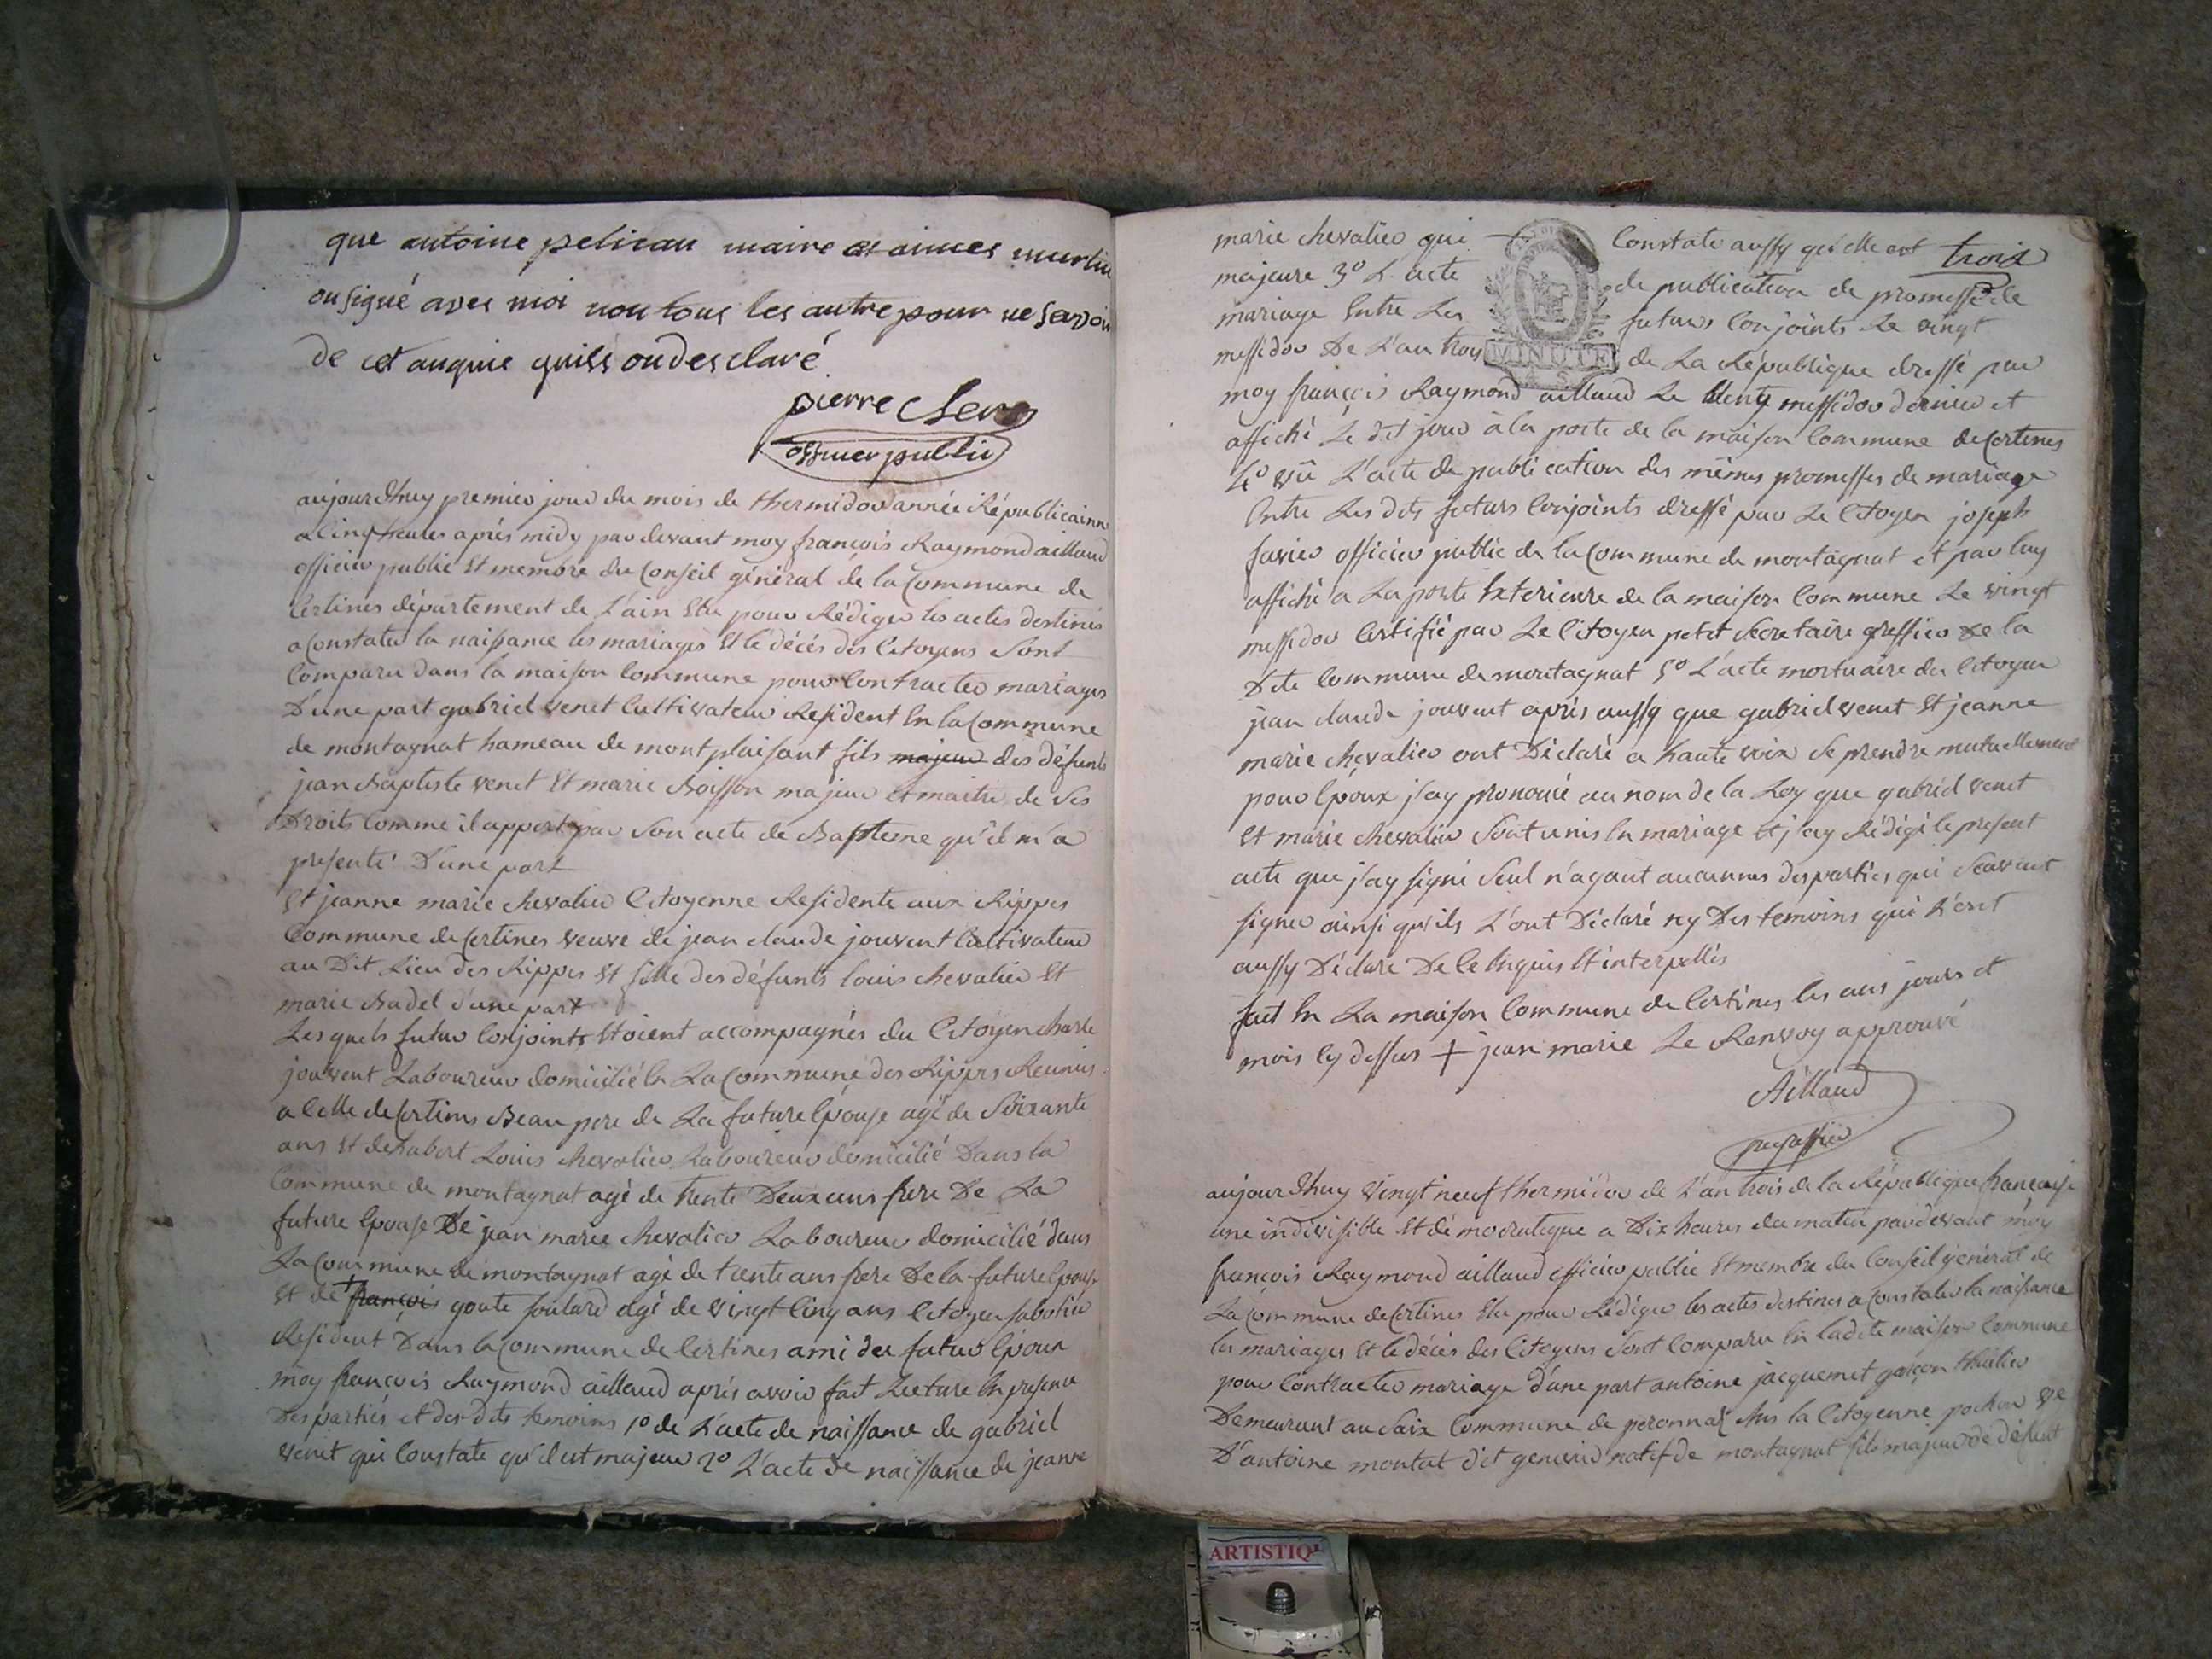 que antoine pelican maire et aimes murlin
on signé aves moi non tous les autre pour ne savoir
de cet anquie quils on desclaré
pierre
officier public
aujourdhuy premier jour du mois de thermidor année Républicainne
a cinq heures après midy par devant moy françois Raymond aillaud
officier public et membre du Conseil général de la Commune de
Certines département de L'ain Elu pour Rédiger les actes destinés
a Constater la naissance les mariages et le décés des Citoyens Sont
Comparu dans la maison Commune pour Contracter mariages
D'une part gabriel venet Cultivateur Resident En la Commune
de montagnat hameau de montplaisant fils majeur des défunts
jean Baptiste venet Et marie Boisson majeur et maitre de ses
Droits Comme il appert par Son acte de Bapteme qu'il m'a
presenté D'une part
Et jeanne marie chevalier Citoyenne Residente aux Rippes
Commune de Certines veuve de jean claude jouvent Cultivateur
au Dit Lieu des Rippes Et fille des défunts louis chevalier Et
marie Badel d'une part
Les quels futur Conjoints Etoient accompagnés du Citoyen charle
jouvent Laboureur domicilié En La Commune des Rippes Reunies
a Celle de Certines Beau pere de La future Epouse agé de Soixante
ans Et de Louis chevalier Laboureur domicilié Dans la
Commune de montagnat agé de trente Deux ans frere De La
future Epouse De jean marie chevalier Laboureur domicilié dans
La Commune de montagnat agé de trente ans frere De la future Epouse
Et de + françois goute foulard agé de vingt Cinq ans Citoyen sabotier
Resident Dans la Commune de Certines ami du futur Epoux
moy françois Raymond aillaud après avoir fait Lecture En presence
Des parties et des dits temoins 1º de L'acte de naissance de gabriel
venet qui Constate qu'il est majeur 2º L'acte de naissance de jeanne
marie chevalier qui Constate aussy qu'elle est trois
majeure 3º L'acte de publication de promesse de
mariage Entre Les futurs Conjoints Le vingt
messidor De L'an trois de La République dressé par
MINUTE
moy françois Raymond aillaud Le messidor dernier et
affiché Le dit jour à la porte de la maison Commune de Certines
4º vû L'acte de publication des mêmes promesses de mariage
Entre Les dits futurs Conjoints dressé par Le Citoyen joseph
favier officier public de la Commune de montagnat et par luy
affiché a La porte Exterieure de la maison Commune Le vingt
messidor Certifié par Le Citoyen petit Secretaire greffier De la
Dite Commune de montagnat 5º L'acte mortuaire du Citoyen
jean claude jouvent après aussy que gabriel venet Et jeanne
marie chevalier ont Déclaré a haute voix Se prendre mutuellement
pour Epoux j'ay prononcé au nom de la Loy que gabriel venet
Et marie chevalier Sont unis En mariage Et j'ay Rédigé le present
acte que j'ay signé Seul n'ayant aucunnes des parties qui Scavent
signer ainsi qu'ils L'ont Déclaré ny Des temoins qui L'ont
aussy Déclaré De Ce Enquis Et interpellés
fait En La maison Commune de Certines les ans jours et
mois Cy dessus + jean marie Le Renvoy approuvé
Aillaud
aujourdhuy vingt neuf thermidor de L'an trois de la République française
une indivisible Et démocratique a Dix heures du matin par devant moy
françois Raymond aillaud officier public Et membre du Conseil général de
La Commune de Certines Elu pour Rédiger les actes destines a Constater la naissance
les mariages Et le décés des Citoyens Sont Comparu En ladite maison Commune
pour Contracter mariage d'une part antoine jacquemet garçon thuilier
Demeurant au Saix Commune de peronnas chés la Citoyenne pochon ve
D'antoine montat dit natif de montagnat fils majeur de défunt
ARTISTIQ